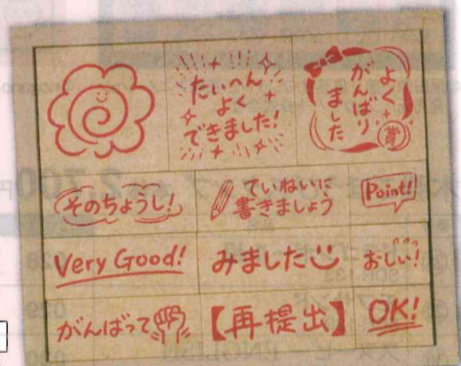 たいへん
よく
できました!
よく
がんばり
ました
賞
そのちょうし!
ていねいに
書きましょう
Point!
Very Good!
みました
おしい!
がんばって
【再提出】
OK!